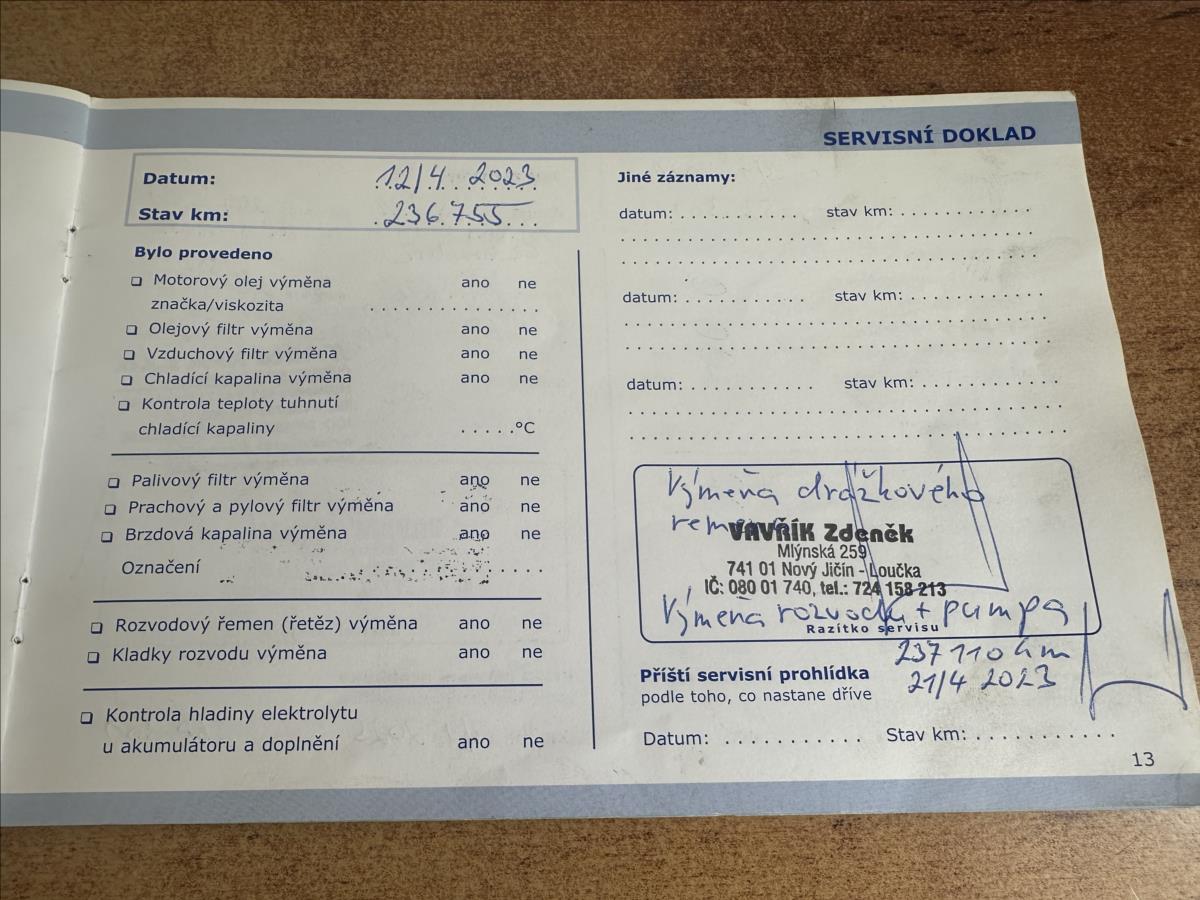 SERVISNÍ DOKLAD
Datum: 12/4 2023
Stav km: 236.755
Bylo provedeno
❑ Motorový olej výměna ano ne
značka/viskozita ....................
❑ Olejový filtr výměna ano ne
❑ Vzduchový filtr výměna ano ne
❑ Chladící kapalina výměna ano ne
❑ Kontrola teploty tuhnutí
chladící kapaliny .....°C
❑ Palivový filtr výměna ano ne
❑ Prachový a pylový filtr výměna ano ne
❑ Brzdová kapalina výměna ano ne
Označení
❑ Rozvodový řemen (řetěz) výměna ano ne
❑ Kladky rozvodu výměna ano ne
❑ Kontrola hladiny elektrolytu
u akumulátoru a doplnění ano ne
Jiné záznamy:
datum: ............ stav km: .............
datum: ............ stav km: .............
datum: ............ stav km: .............
Výměna drážkového
VAVŘÍK Zdeněk
Mlýnská 259
741 01 Nový Jičín - Loučka
IČ: 080 01 740, tel.: 724 158 213
Výměna rozvodu + pumpa
Razítko servisu
237110 km
21/4 2023
Příští servisní prohlídka
podle toho, co nastane dříve
Datum: ........... Stav km: ............
13